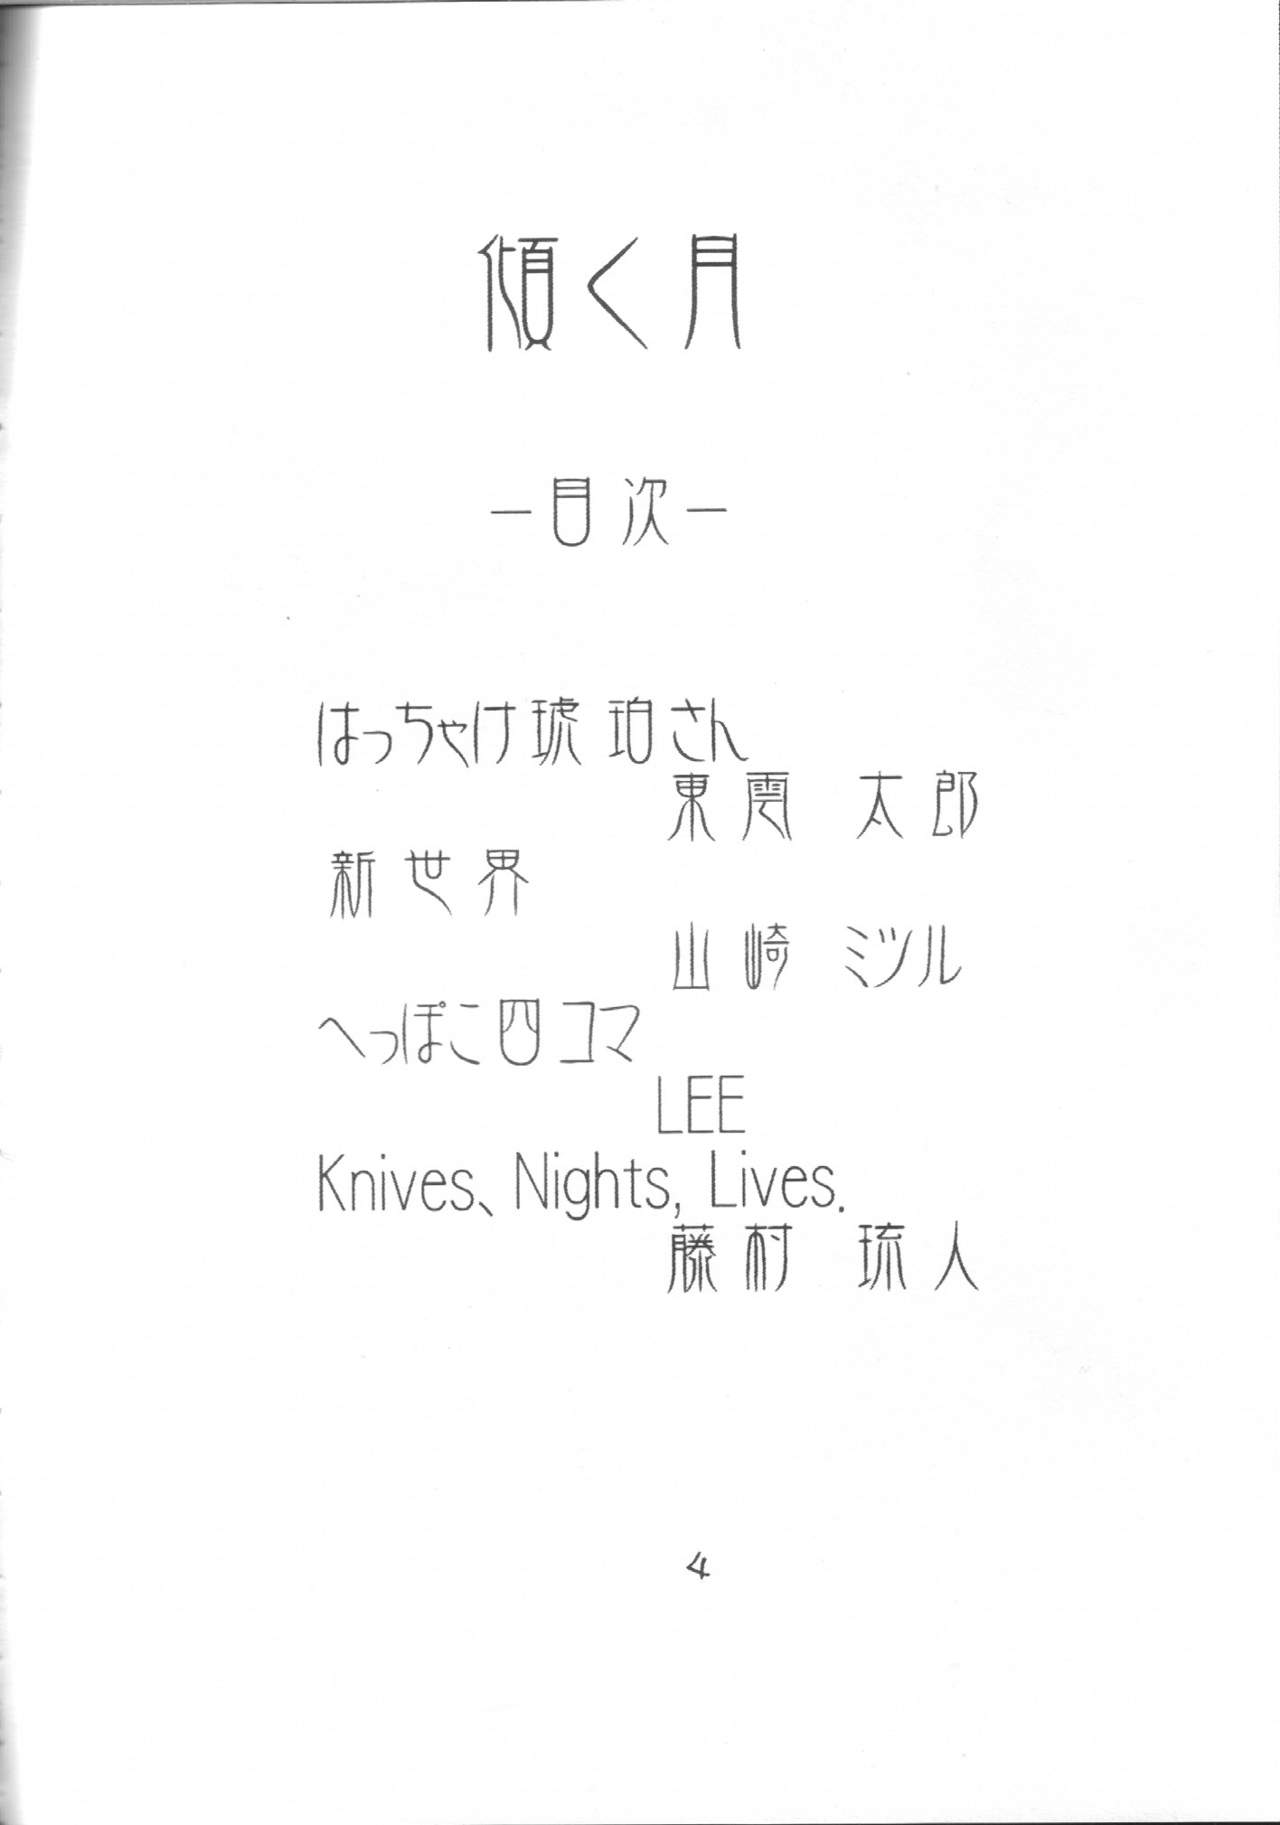 傾く月
－目次－
はっちゃけ琥珀さん
東雲　太郎
新世界
山崎　ミツル
へっぽこ四コマ
LEE
Knives、Nights, Lives.
藤村　琉人
4